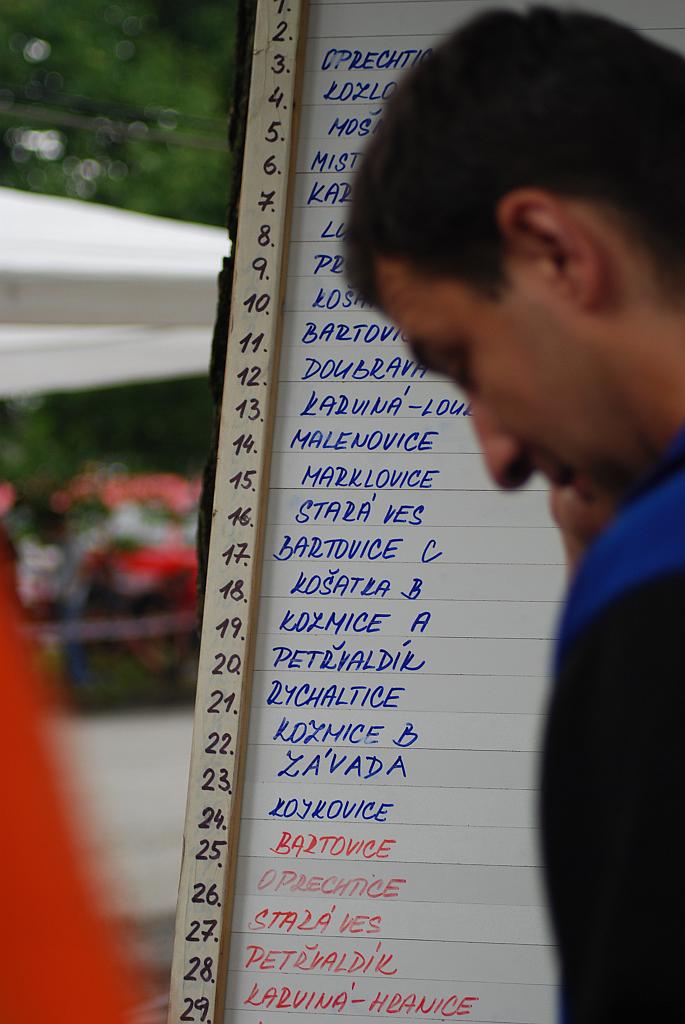 1.
2.
3. OPRECHTIC
4. KOZLO
5. MOŠ
6. MIST
7. KAR
8. LU
9. PR
10. KOŠA
11. BARTOVIC
12. DOUBRAVA
13. KARVINÁ-LOUK
14. MALENOVICE
15. MARKLOVICE
16. STARÁ VES
17. BARTOVICE C
18. KOŠATKA B
19. KOZMICE A
20. PETŘVALDÍK
21. RYCHALTICE
22. KOZMICE B
23. ZÁVADA
24. KOJKOVICE
25. BARTOVICE
26. OPRECHTICE
27. STARÁ VES
28. PETŘVALDÍK
29. KARVINÁ-HRANICE